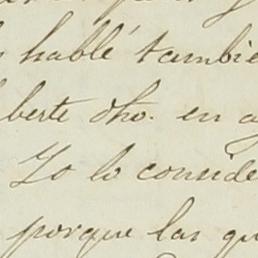 hablé tambie
berte dho. en a
Yo lo conside
porque las qu